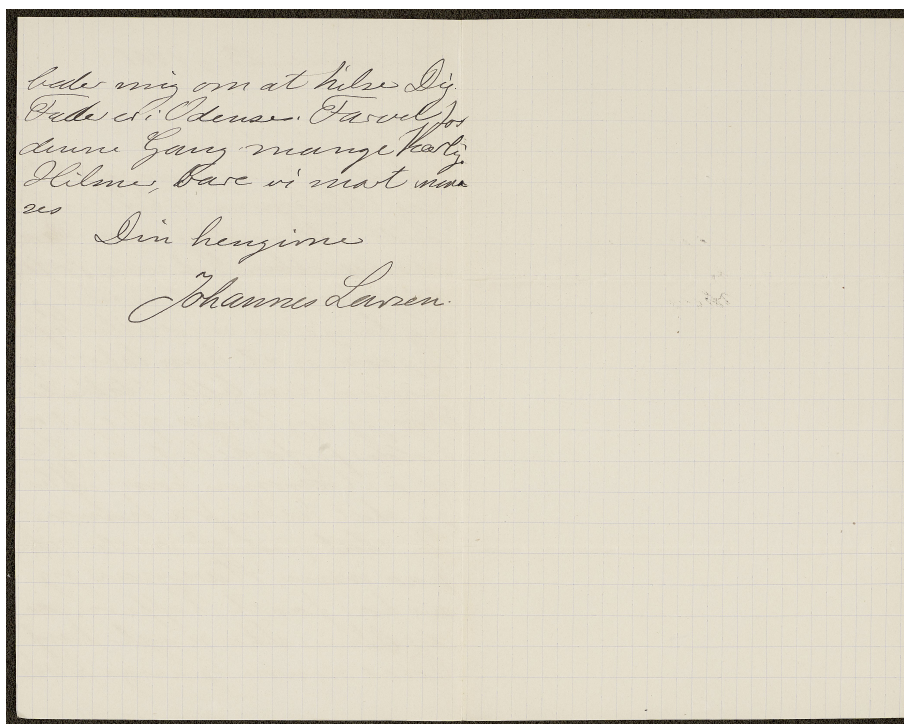 beder mig om at hilse Dig.
Fader er i Odense. Farvel for
denne Gang mange kærlige
Hilsner, bare vi snart
ses
Din hengivne
Johannes Larsen.